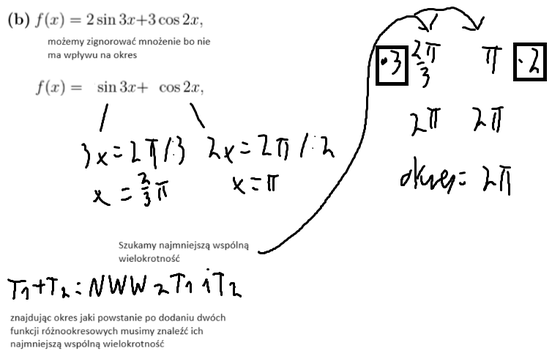 (b) f(x) = 2 sin 3x+3 cos 2x,
możemy zignorować mnożenie bo nie
ma wpływu na okres
f(x) = sin 3x+ cos 2x,
3x = 2π /:3 2x = 2π /:2
x = 2/3 π x = π
·3 2π/3 π ·2
2π 2π
okres = 2π
Szukamy najmniejszą wspólną
wielokrotność
T1+T2 = NWW z T1 i T2
znajdując okres jaki powstanie po dodaniu dwóch
funkcji różnookresowych musimy znaleźć ich
najmniejszą wspólną wielokrotność